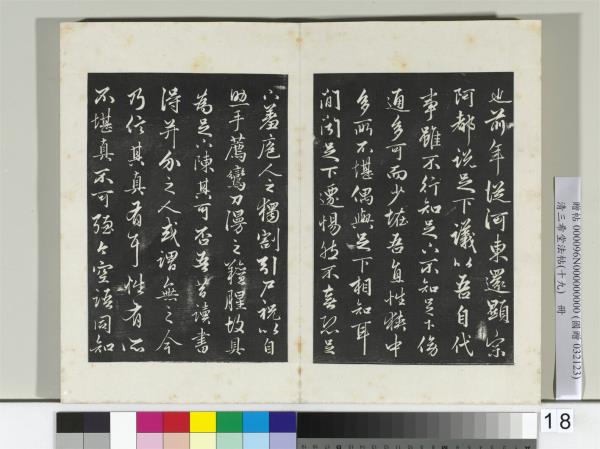 也前年從河東還顯宗
阿都說足下議以吾自代
事雖不行知足下不知足下傍
通多可而少怪吾直性狹中
多所不堪偶與足下相知耳
間聞足下遷惕然不喜恐足
下羞庖人之獨割引尸祝以自
助手薦鸞刀漫之羶腥故具
為足下陳其可否吾昔讀書
得并介之人或謂無之今
乃信其真有耳性有所
不堪真不可强今空語同知
贈帖 000096N000000000 (國贈 032123)
清三希堂法帖(十九) 冊
18